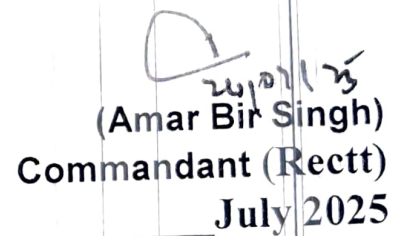 24/07/25
(Amar Bir Singh)
Commandant (Rectt)
July 2025